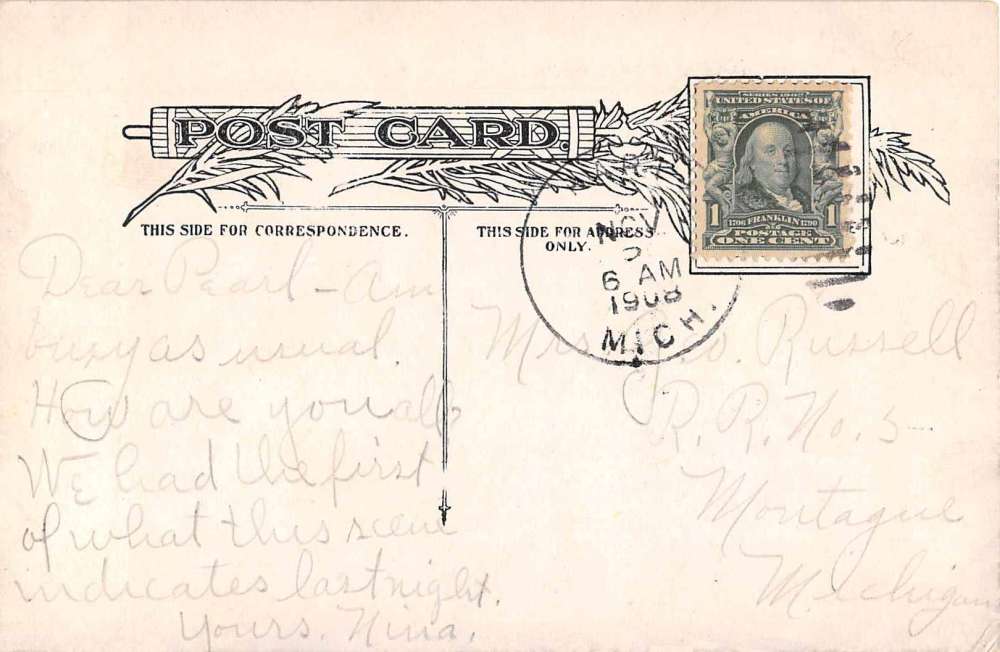 POST CARD.
THIS SIDE FOR CORRESPONDENCE.
THIS SIDE FOR ADDRESS
ONLY.
SERIES 1902
UNITED STATES OF
AMERICA
1
1706 FRANKLIN 1790
POSTAGE
ONE CENT
NOV
6 AM
1908
MICH.
Dear Pearl - Am
busy as usual.
How are you all?
We had the first
of what this scene
indicates last night.
Yours, Nina.
Mrs. Russell
R. R. No. 5
Montague
Michigan